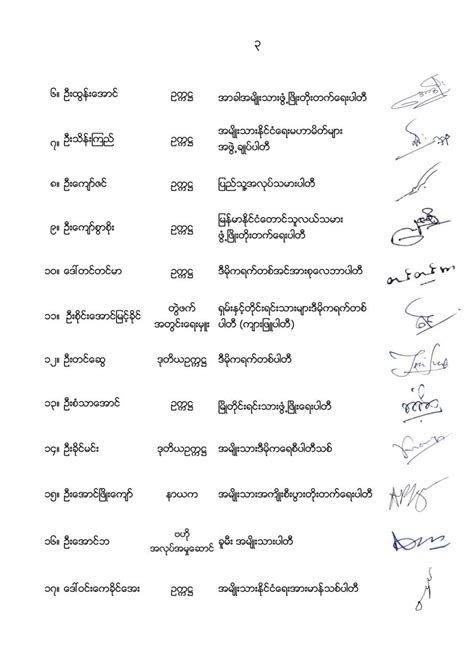 ၃
၆။ ဦးထွန်းအောင် ဥက္ကဋ္ဌ အာခါအမျိုးသားဖွံ့ဖြိုးတိုးတက်ရေးပါတီ
၇။ ဦးသိန်းကြည် ဥက္ကဋ္ဌ အမျိုးသားနိုင်ငံရေးမဟာမိတ်များ
အဖွဲ့ချုပ်ပါတီ
၈။ ဦးကျော်ဇင် ဥက္ကဋ္ဌ ပြည်သူ့အလုပ်သမားပါတီ
၉။ ဦးကျော်စွာစိုး ဥက္ကဋ္ဌ မြန်မာနိုင်ငံတောင်သူလယ်သမား
ဖွံ့ဖြိုးတိုးတက်ရေးပါတီ
၁၀။ ဒေါ်တင်တင်မာ ဥက္ကဋ္ဌ ဒီမိုကရက်တစ်အင်အားစုလေဘာပါတီ တင်တင်မာ
၁၁။ ဦးစိုင်းအောင်မြင့်ခိုင် တွဲဖက် ရှမ်းနှင့်တိုင်းရင်းသားများဒီမိုကရက်တစ်
အတွင်းရေးမှူး ပါတီ (ကျားဖြူပါတီ)
၁၂။ ဦးတင်ဆွေ ဒုတိယဥက္ကဋ္ဌ ဒီမိုကရက်တစ်ပါတီ
၁၃။ ဦးစံသာအောင် ဥက္ကဋ္ဌ မြိုတိုင်းရင်းသားဖွံ့ဖြိုးရေးပါတီ
၁၄။ ဦးခိုင်မင်း ဒုတိယဥက္ကဋ္ဌ အမျိုးသားဒီမိုကရေစီပါတီသစ်
၁၅။ ဦးအောင်ဖြိုးကျော် နာယက အမျိုးသားအကျိုးစီးပွားတိုးတက်ရေးပါတီ
၁၆။ ဦးအောင်ဘ ဗဟို ခူမီး အမျိုးသားပါတီ
အလုပ်အမှုဆောင်
၁၇။ ဒေါ်ဝင်းကေခိုင်အေး ဥက္ကဋ္ဌ အမျိုးသားနိုင်ငံရေးအားမာန်သစ်ပါတီ